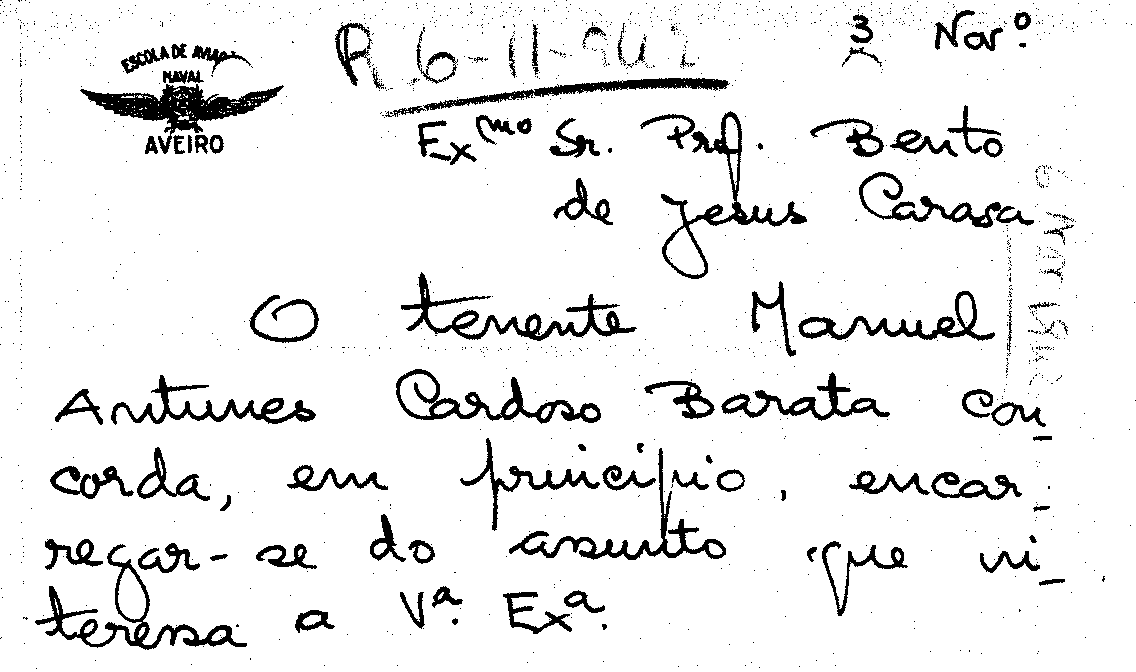 ESCOLA DE AVIAÇÃO
NAVAL
AVEIRO
R 6-11-942
3 Nov.º
Ex.mo Sr. Prof. Bento
de Jesus Caraça
O tenente Manuel
Antunes Cardoso Barata con
corda, em princípio, encar
regar-se do assunto que in
teressa a Vª. Exª.
6 Nov 1942